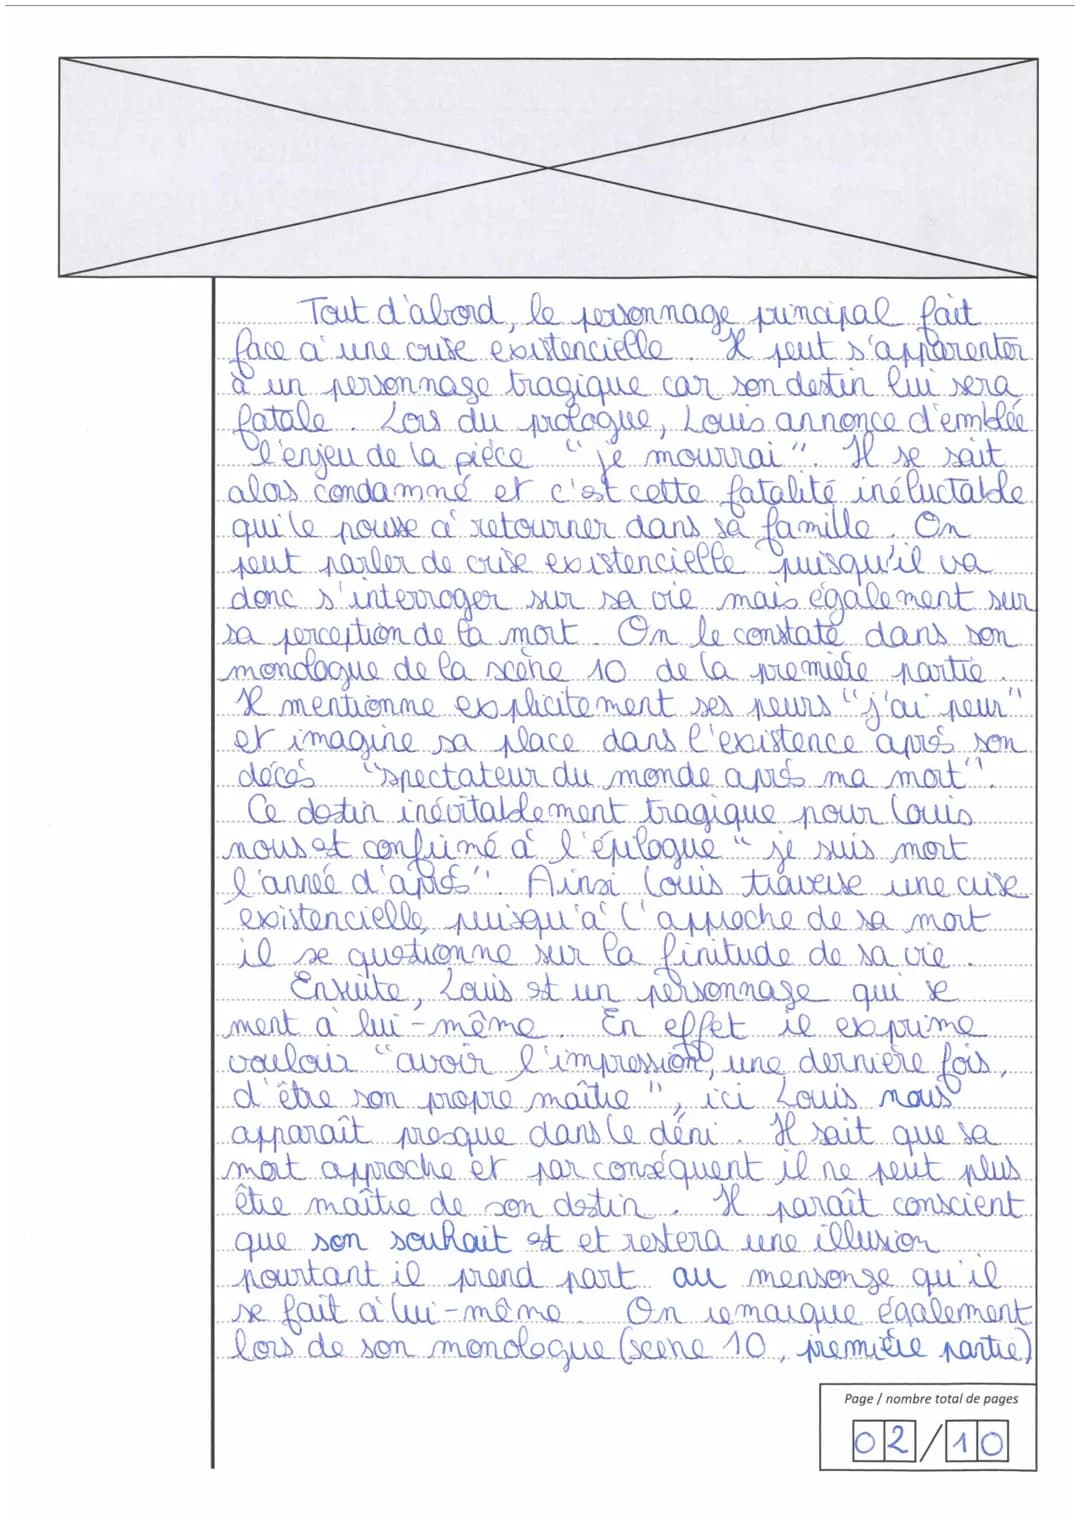 Tout d'abord, le personnage principal fait
face à une crise existencielle. Il peut s'apparenter
à un personnage tragique car son destin lui sera
fatale. Lors du prologue, Louis annonce d'emblée
l'enjeu de la pièce "je mourrai". Il se sait
alors condamné et c'est cette fatalité inéluctable
qui le pousse à retourner dans sa famille. On
peut parler de crise existencielle puisqu'il va
donc s'interroger sur sa vie mais également sur
sa perception de la mort. On le constate dans son
monologue de la scène 10 de la première partie.
Il mentionne explicitement ses peurs "j'ai peur"
et imagine sa place dans l'existence après son
décès "spectateur du monde après ma mort".
Ce destin inévitablement tragique pour Louis
nous est confirmé à l'épilogue "je suis mort
l'année d'après". Ainsi Louis traverse une crise
existencielle puisqu'à l'approche de sa mort
il se questionne sur la finitude de sa vie.
Ensuite, Louis est un personnage qui se
ment à lui-même. En effet il exprime
vouloir "avoir l'impression, une dernière fois,
d'être son propre maître", ici Louis nous
apparaît presque dans le déni. Il sait que sa
mort approche et par conséquent il ne peut plus
être maître de son destin. Il paraît conscient
que son souhait est et restera une illusion
pourtant il prend part au mensonge qu'il
se fait à lui-même. On remarque également
lors de son monologue (scène 10, première partie)
Page / nombre total de pages
02/10